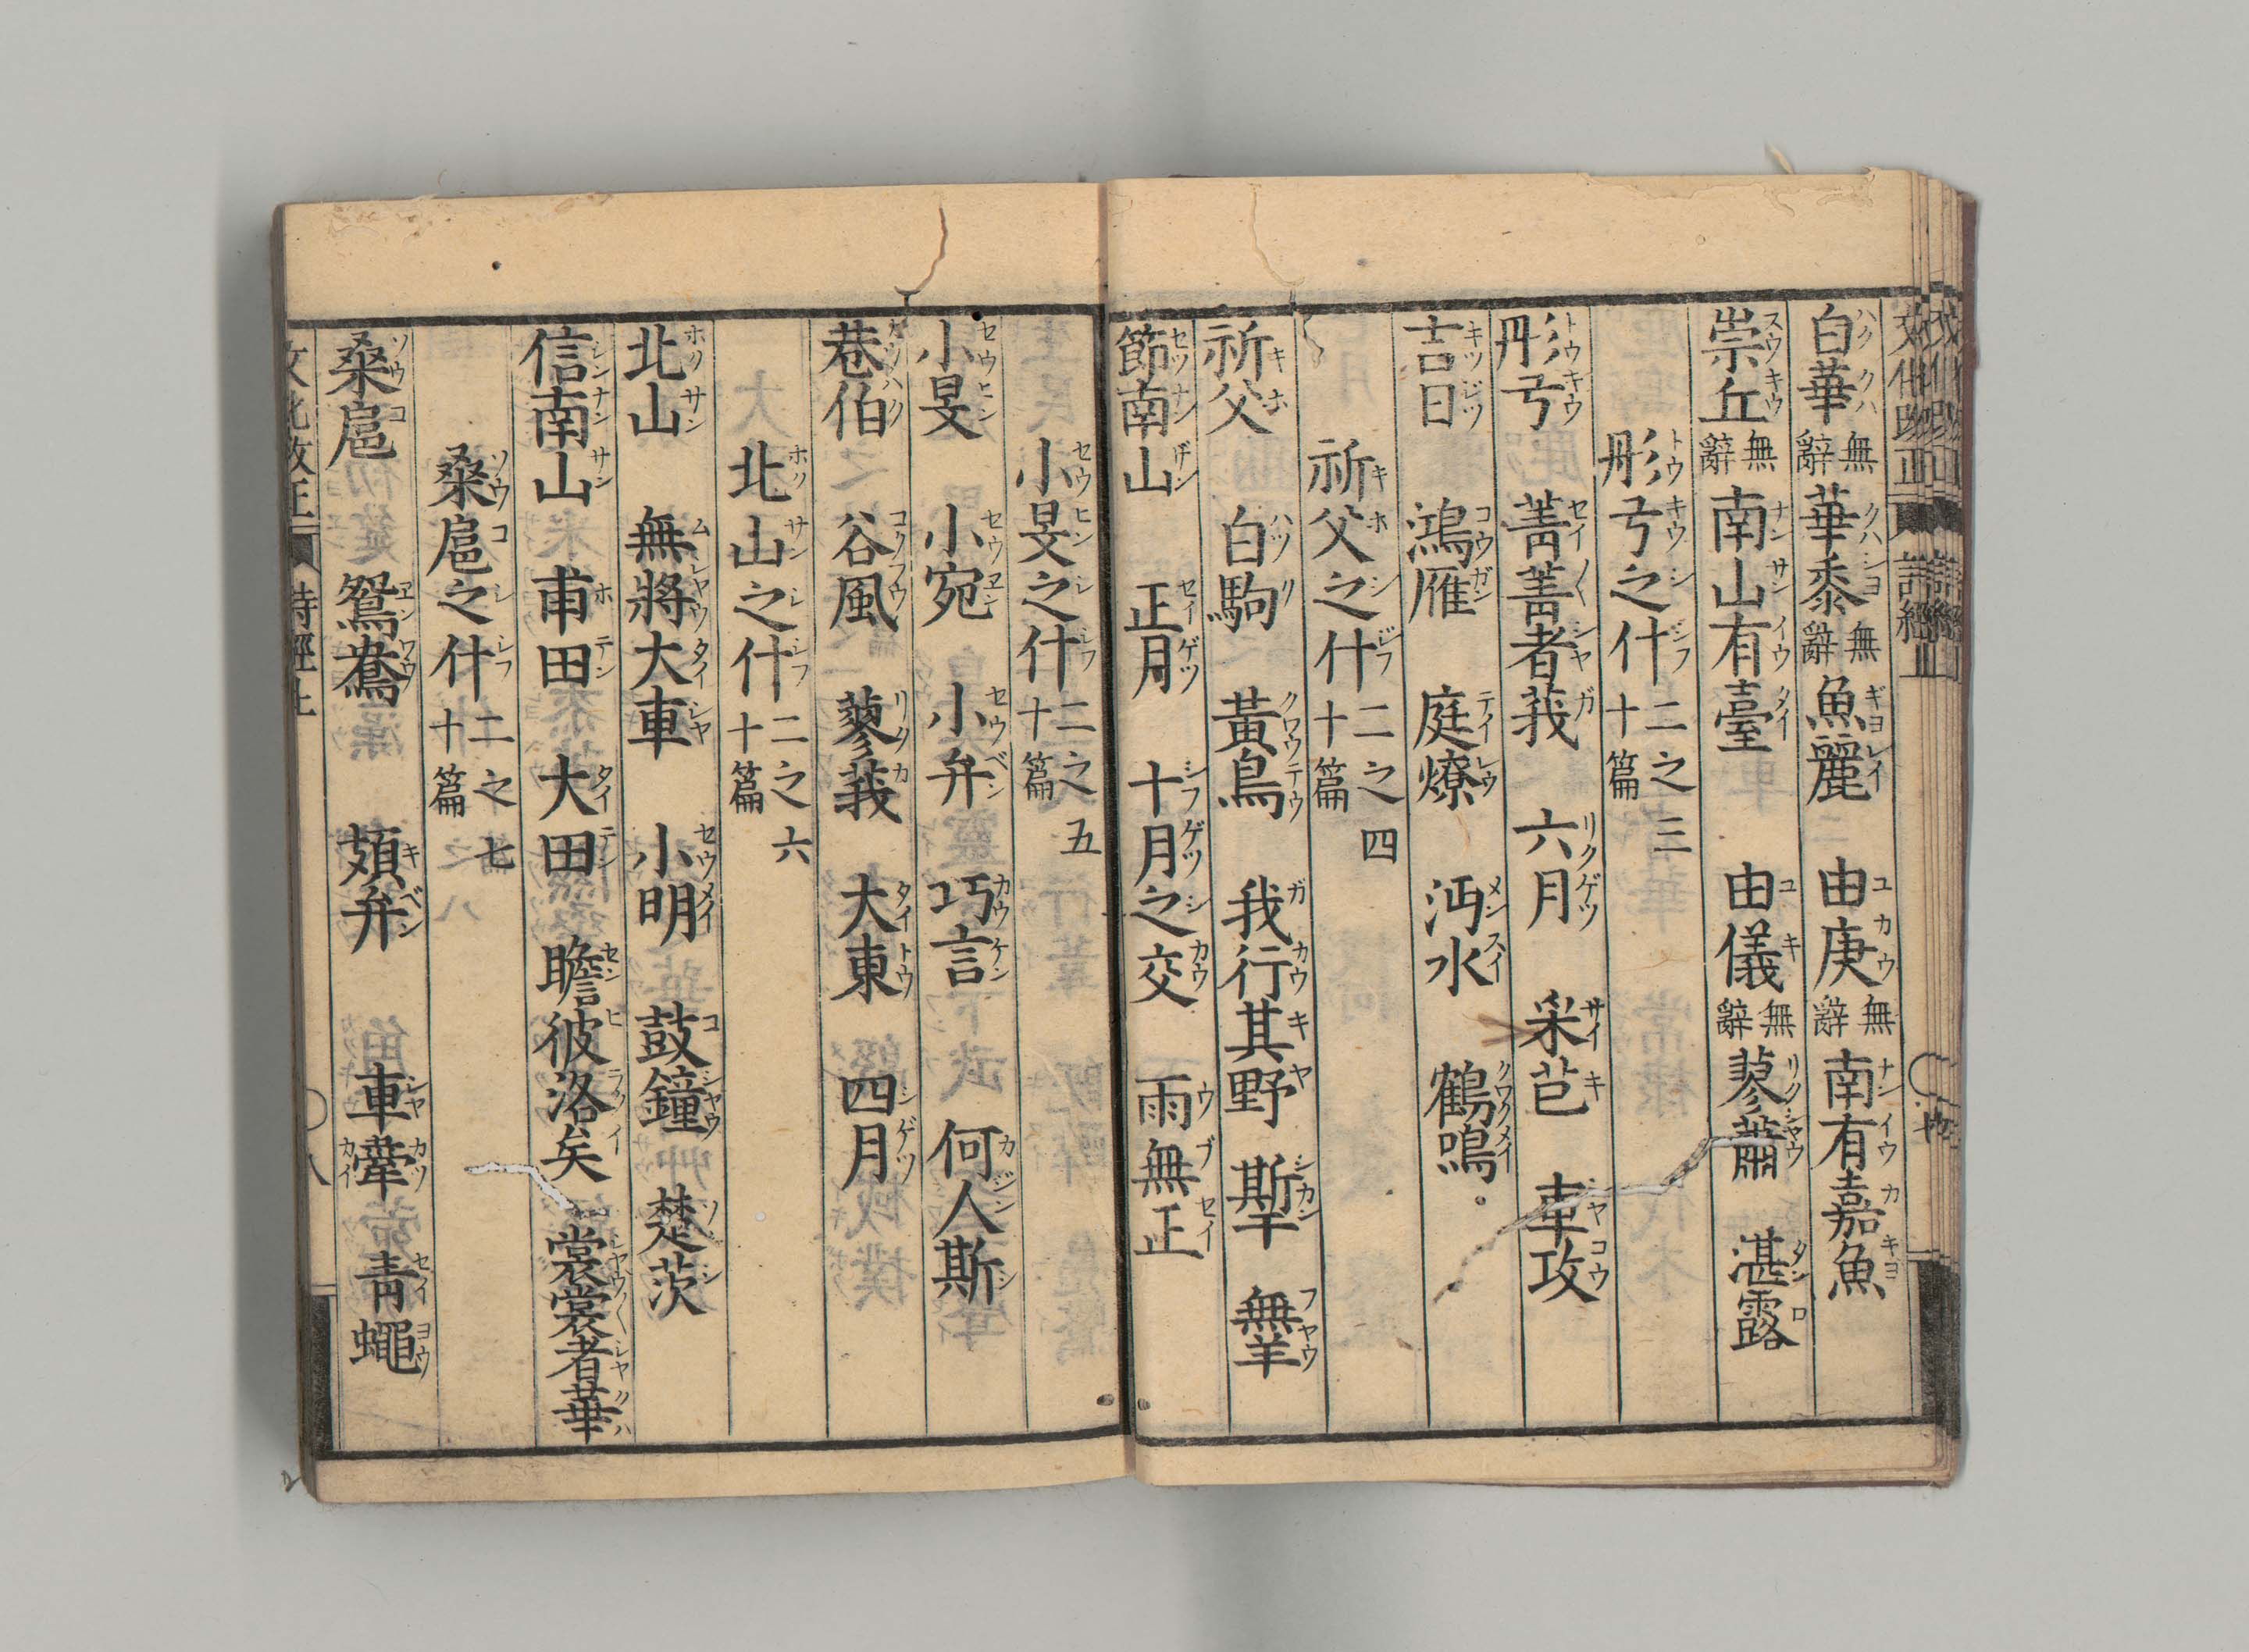 白華 無辭 華黍 無辭 魚麗 由庚 無辭 南有嘉魚
崇丘 無辭 南山有臺 由儀 無辭 蓼蕭 湛露
彤弓之什二之三 十篇
彤弓 菁菁者莪 六月 采芑 車攻
吉日 鴻雁 庭燎 沔水 鶴鳴
祈父之什二之四 十篇
祈父 白駒 黃鳥 我行其野 斯干 無羊
節南山 正月 十月之交 雨無正
小旻之什二之五 十篇
小旻 小宛 小弁 巧言 何人斯
巷伯 谷風 蓼莪 大東 四月
北山之什二之六 十篇
北山 無將大車 小明 鼓鐘 楚茨
信南山 甫田 大田 瞻彼洛矣 裳裳者華
桑扈之什二之七 十篇
桑扈 鴛鴦 頍弁 車舝 青蠅
文化改正 詩經上 八